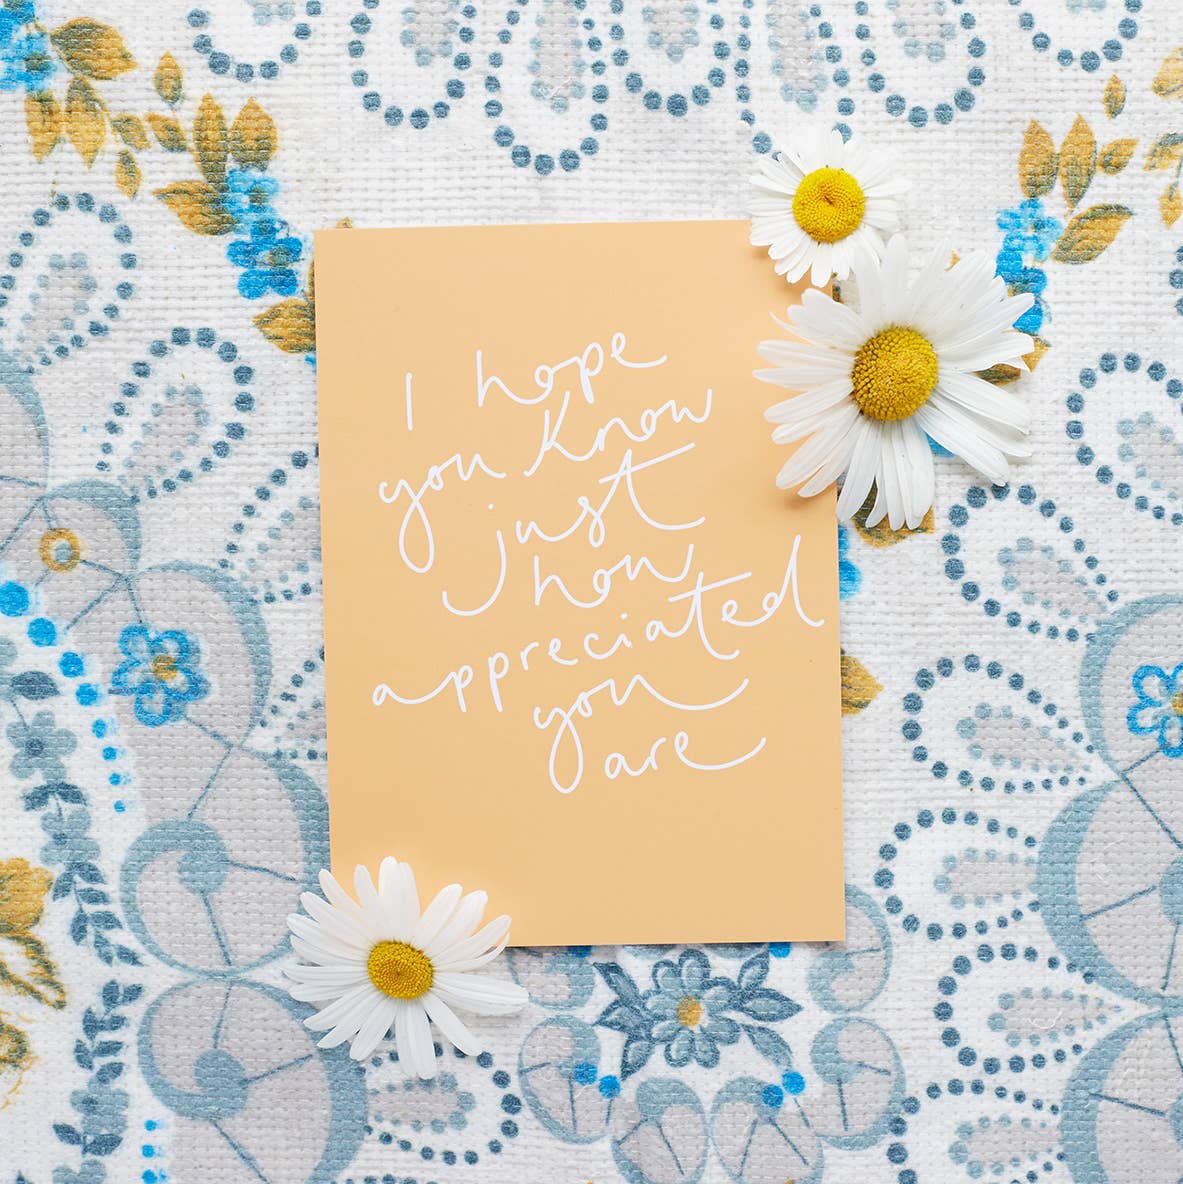 I hope
you know
just
how
appreciated
you
are